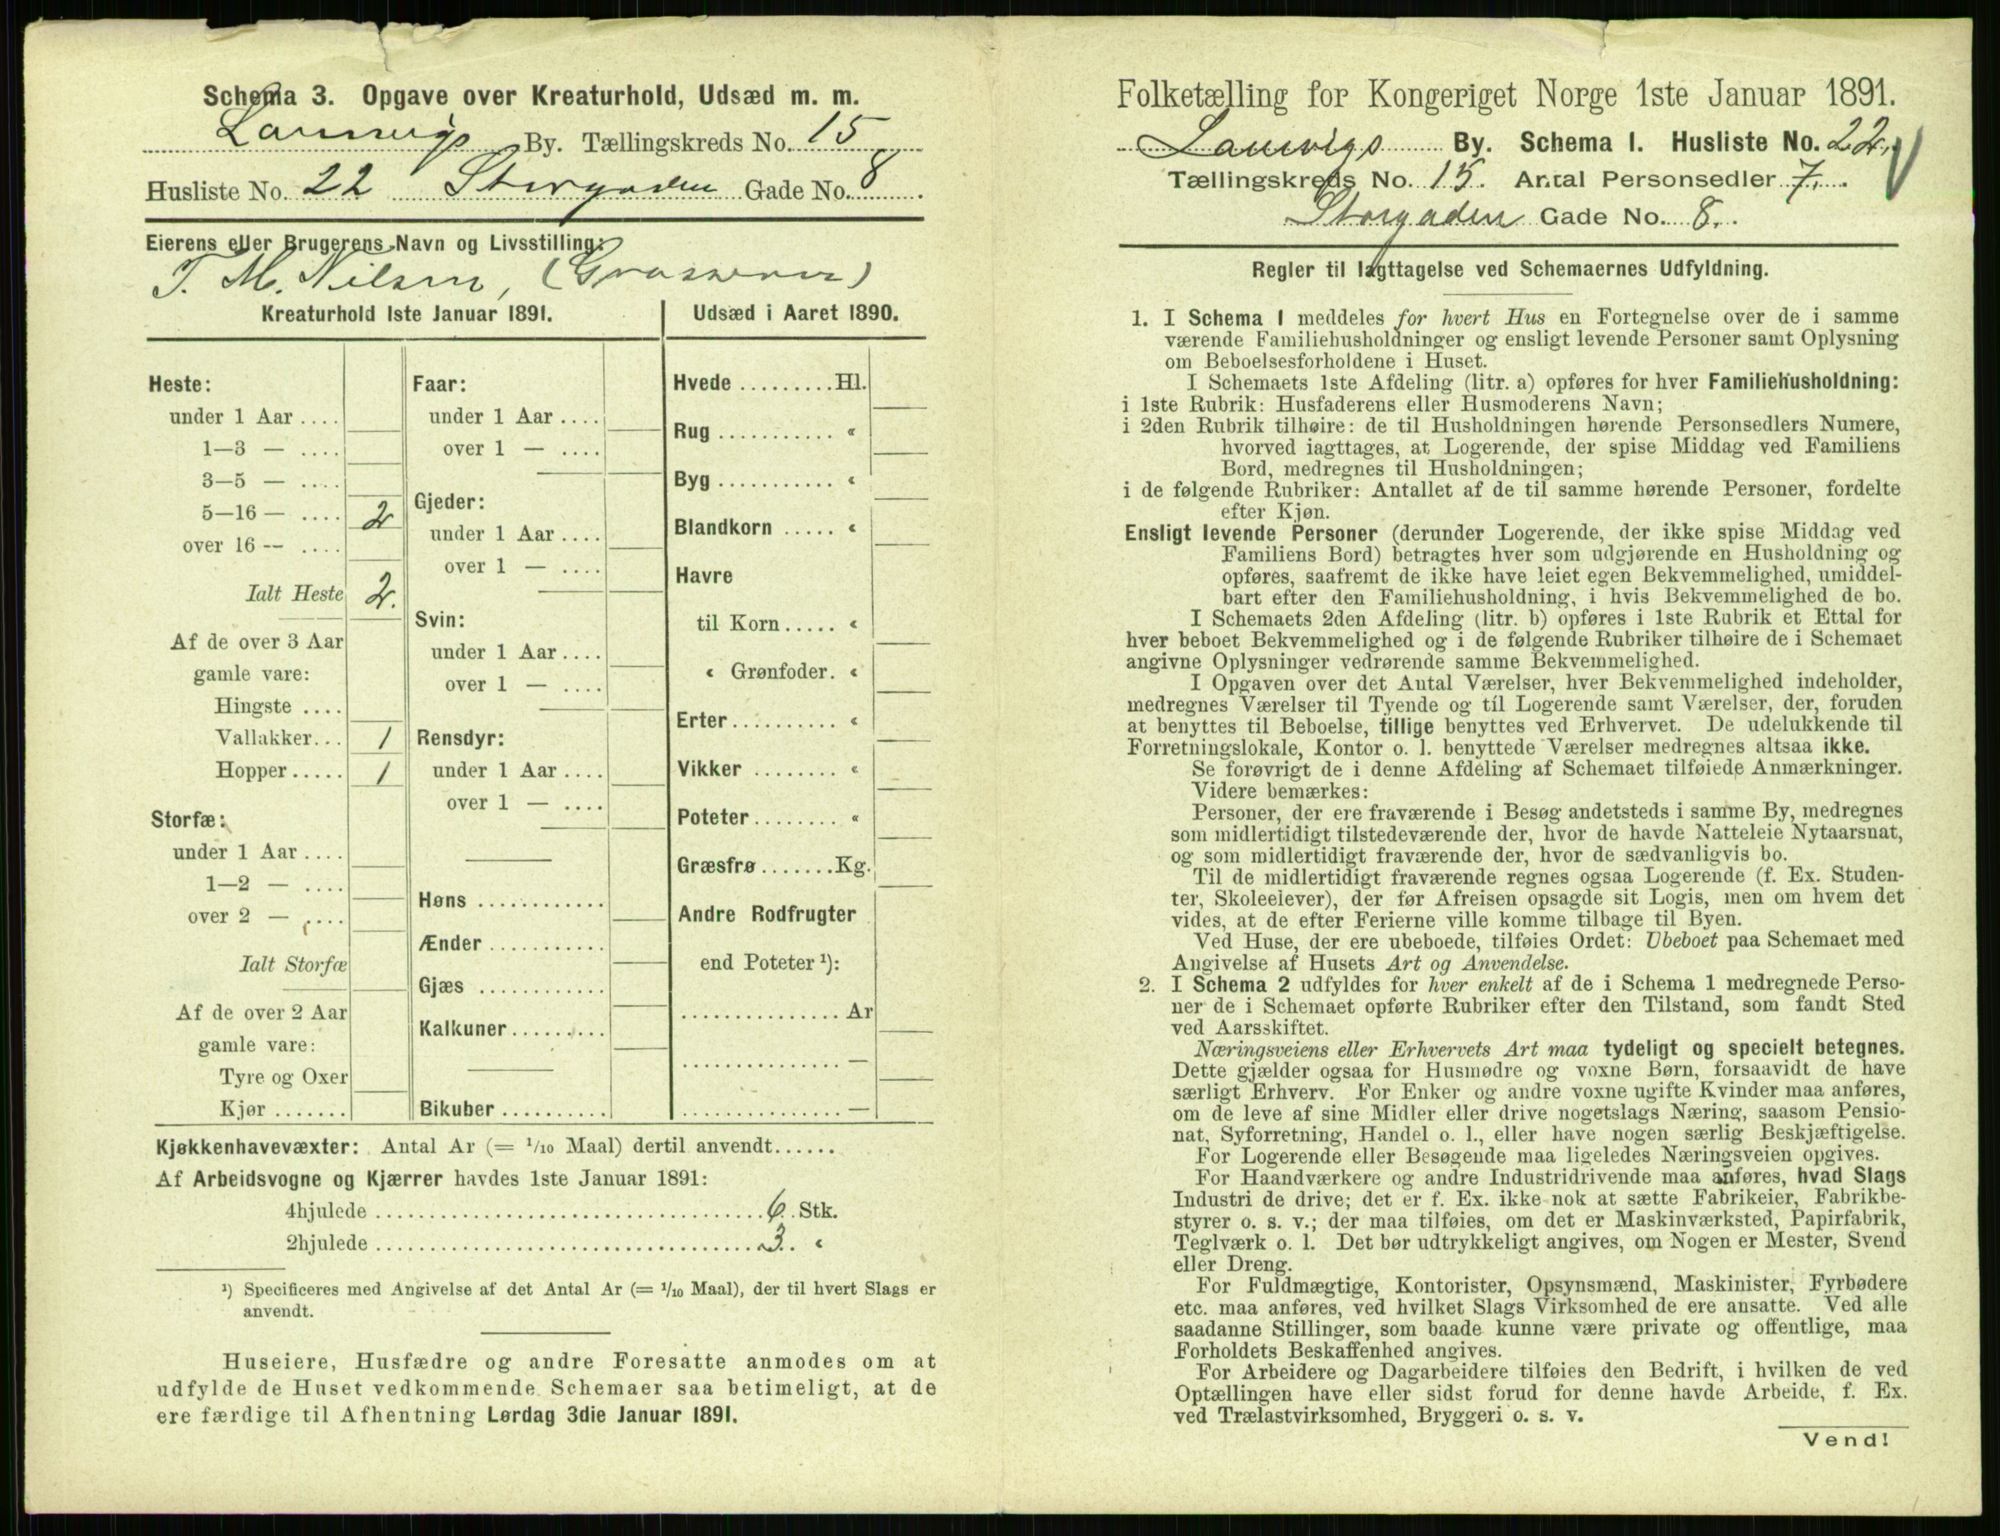 Schema 3. Opgave over Kreaturhold, Udsæd m. m.
Laurvigs By. Tællingskreds No. 15
Husliste No. 22 Storgaden Gade No. 8
Eierens eller Brugerens Navn og Livsstilling:
T. M. Nilsen, (Grosserer)
Kreaturhold 1ste Januar 1891.
Heste:
under 1 Aar ....
1—3 — ....
3—5 — ....
5—16 — .... 2
over 16 — ....
Ialt Heste 2.
Af de over 3 Aar
gamle vare:
Hingste ....
Vallakker... 1
Hopper..... 1
Storfæ:
under 1 Aar ....
1—2 — ....
over 2 — ....
Ialt Storfæ
Af de over 2 Aar
gamle vare:
Tyre og Oxer
Kjør .......
Faar:
under 1 Aar ....
over 1 — ....
Gjeder:
under 1 Aar ....
over 1 — ....
Svin:
under 1 Aar ....
over 1 — ....
Rensdyr:
under 1 Aar ....
over 1 — ....
Høns ............
Ænder ...........
Gjæs ............
Kalkuner.........
Bikuber ..........
Udsæd i Aaret 1890.
Hvede .........Hl.
Rug ........... «
Byg ........... «
Blandkorn ..... «
Havre
til Korn..... «
« Grønfoder. «
Erter.......... «
Vikker ........ «
Poteter........ «
Græsfrø .......Kg.
Andre Rodfrugter
end Poteter ¹):
............... Ar
............... —
............... —
Kjøkkenhavevæxter: Antal Ar (= 1/10 Maal) dertil anvendt......
Af Arbeidsvogne og Kjærrer havdes 1ste Januar 1891:
4hjulede ..................................... 6. Stk.
2hjulede ..................................... 3. «
¹) Specificeres med Angivelse af det Antal Ar (= 1/10 Maal), der til hvert Slags er
anvendt.
Huseiere, Husfædre og andre Foresatte anmodes om at
udfylde de Huset vedkommende Schemaer saa betimeligt, at de
ere færdige til Afhentning Lørdag 3die Januar 1891.
Folketælling for Kongeriget Norge 1ste Januar 1891.
Laurvigs By. Schema I. Husliste No. 22.
Tællingskreds No. 15. Antal Personsedler 7.
Storgaden Gade No. 8.
Regler til Iagttagelse ved Schemaernes Udfyldning.
1. I Schema I meddeles for hvert Hus en Fortegnelse over de i samme
værende Familiehusholdninger og ensligt levende Personer samt Oplysning
om Beboelsesforholdene i Huset.
I Schemaets 1ste Afdeling (litr. a) opføres for hver Familiehusholdning:
i 1ste Rubrik: Husfaderens eller Husmoderens Navn;
i 2den Rubrik tilhøire: de til Husholdningen hørende Personsedlers Numere,
hvorved iagttages, at Logerende, der spise Middag ved Familiens
Bord, medregnes til Husholdningen;
i de følgende Rubriker: Antallet af de til samme hørende Personer, fordelte
efter Kjøn.
Ensligt levende Personer (derunder Logerende, der ikke spise Middag ved
Familiens Bord) betragtes hver som udgjørende en Husholdning og
opføres, saafremt de ikke have leiet egen Bekvemmelighed, umiddel-
bart efter den Familiehusholdning, i hvis Bekvemmelighed de bo.
I Schemaets 2den Afdeling (litr. b) opføres i 1ste Rubrik et Ettal for
hver beboet Bekvemmelighed og i de følgende Rubriker tilhøire de i Schemaet
angivne Oplysninger vedrørende samme Bekvemmelighed.
I Opgaven over det Antal Værelser, hver Bekvemmelighed indeholder,
medregnes Værelser til Tyende og til Logerende samt Værelser, der, foruden
at benyttes til Beboelse, tillige benyttes ved Erhvervet. De udelukkende til
Forretningslokale, Kontor o. l. benyttede Værelser medregnes altsaa ikke.
Se forøvrigt de i denne Afdeling af Schemaet tilføiede Anmærkninger.
Videre bemærkes:
Personer, der ere fraværende i Besøg andetsteds i samme By, medregnes
som midlertidigt tilstedeværende der, hvor de havde Natteleie Nytaarsnat,
og som midlertidigt fraværende der, hvor de sædvanligvis bo.
Til de midlertidigt fraværende regnes ogsaa Logerende (f. Ex. Studen-
ter, Skoleelever), der før Afreisen opsagde sit Logis, men om hvem det
vides, at de efter Ferierne ville komme tilbage til Byen.
Ved Huse, der ere ubeboede, tilføies Ordet: Ubeboet paa Schemaet med
Angivelse af Husets Art og Anvendelse.
2. I Schema 2 udfyldes for hver enkelt af de i Schema 1 medregnede Perso-
ner de i Schemaet opførte Rubriker efter den Tilstand, som fandt Sted
ved Aarsskiftet.
Næringsveiens eller Erhvervets Art maa tydeligt og specielt betegnes.
Dette gjælder ogsaa for Husmødre og voxne Børn, forsaavidt de have
særligt Erhverv. For Enker og andre voxne ugifte Kvinder maa anføres,
om de leve af sine Midler eller drive nogetslags Næring, saasom Pensio-
nat, Syforretning, Handel o. l., eller have nogen særlig Beskjæftigelse.
For Logerende eller Besøgende maa ligeledes Næringsveien opgives.
For Haandværkere og andre Industridrivende maa anføres, hvad Slags
Industri de drive; det er f. Ex. ikke nok at sætte Fabrikeier, Fabrikbe-
styrer o. s. v.; der maa tilføies, om det er Maskinværksted, Papirfabrik,
Teglværk o. l. Det bør udtrykkeligt angives, om Nogen er Mester, Svend
eller Dreng.
For Fuldmægtige, Kontorister, Opsynsmænd, Maskinister, Fyrbødere
etc. maa anføres, ved hvilket Slags Virksomhed de ere ansatte. Ved alle
saadanne Stillinger, som baade kunne være private og offentlige, maa
Forholdets Beskaffenhed angives.
For Arbeidere og Dagarbeidere tilføies den Bedrift, i hvilken de ved
Optællingen have eller sidst forud for denne havde Arbeide, f. Ex.
ved Trælastvirksomhed, Bryggeri o. s. v.
Vend!